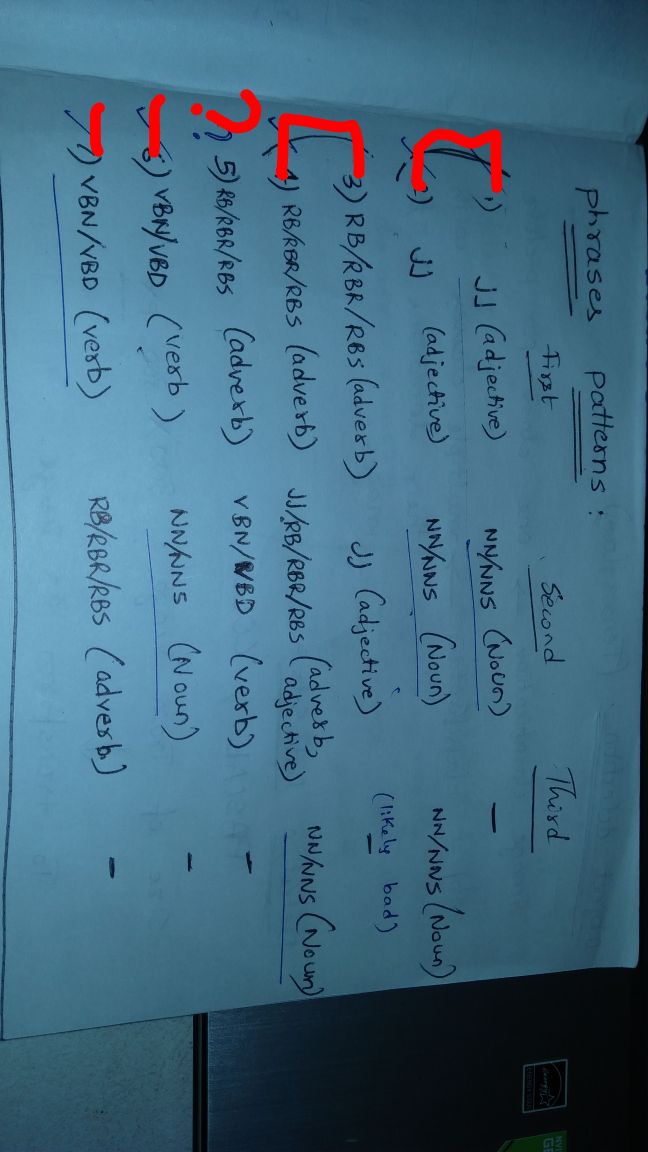 phrases patterns :
First Second Third
1) JJ (adjective) NN/NNS (Noun) -
2) JJ (adjective) NN/NNS (Noun) NN/NNS (Noun)
3) RB/RBR/RBS (adverb) JJ (adjective) -
(likely bad)
4) RB/RBR/RBS (adverb) JJ/RB/RBR/RBS (adverb, adjective) NN/NNS (Noun)
? 5) RB/RBR/RBS (adverb) VBN/VBD (verb) -
6) VBN/VBD (verb) NN/NNS (Noun) -
7) VBN/VBD (verb) RB/RBR/RBS (adverb) -